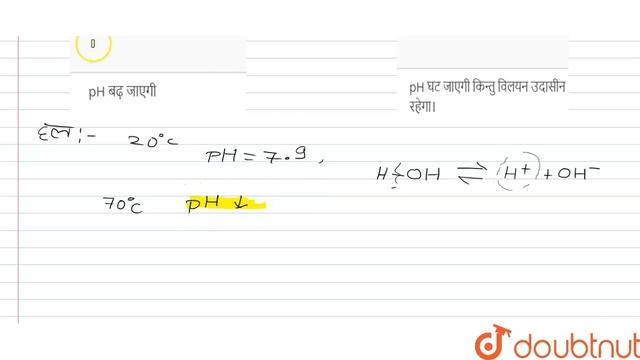 pH बढ़ जाएगी
pH घट जाएगी किन्तु विलयन उदासीन
रहेगा।
हल :-
20°C
pH = 7.9,
H-OH ⇌ H⁺ + OH⁻
70°C pH ↓
doubtnut